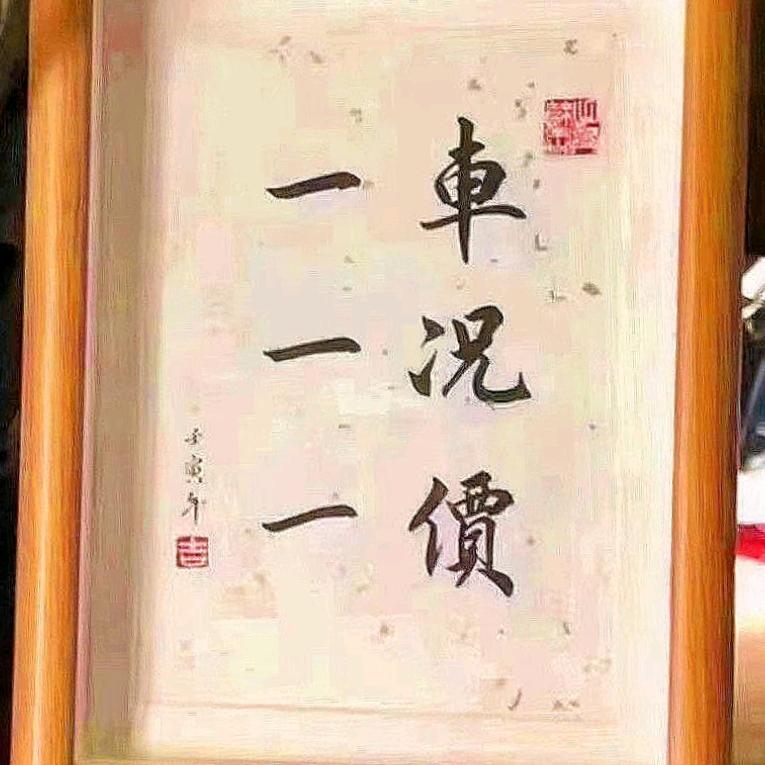 車況價
一一一
壬寅年
吉